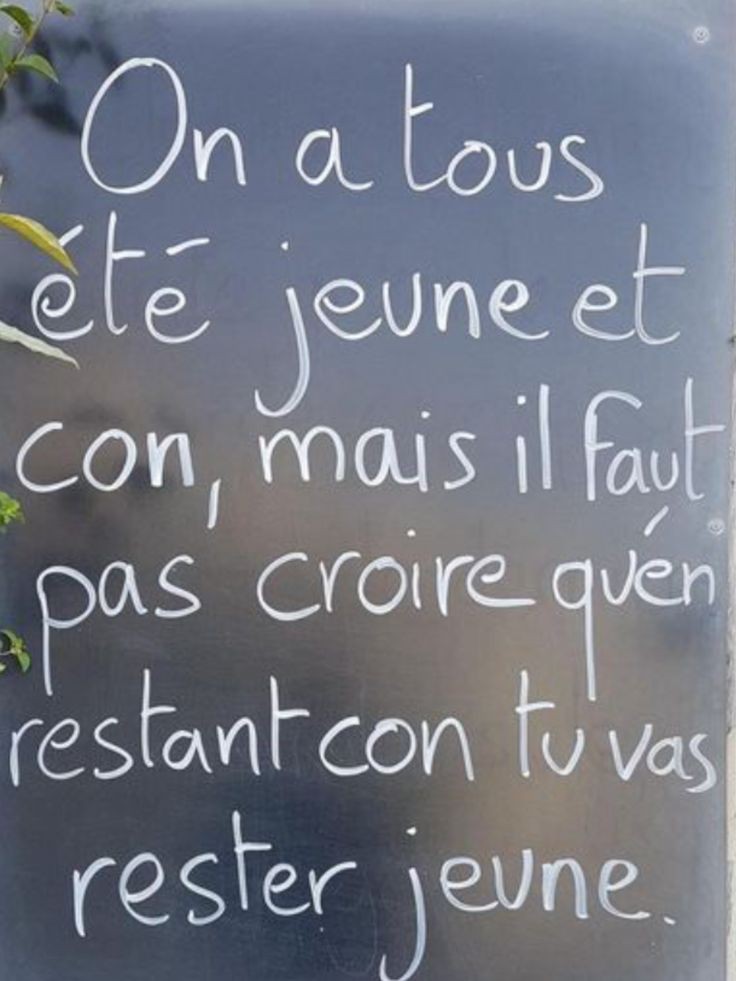 On a tous
été jeune et
con, mais il faut
pas croire qu'en
restant con tu vas
rester jeune.